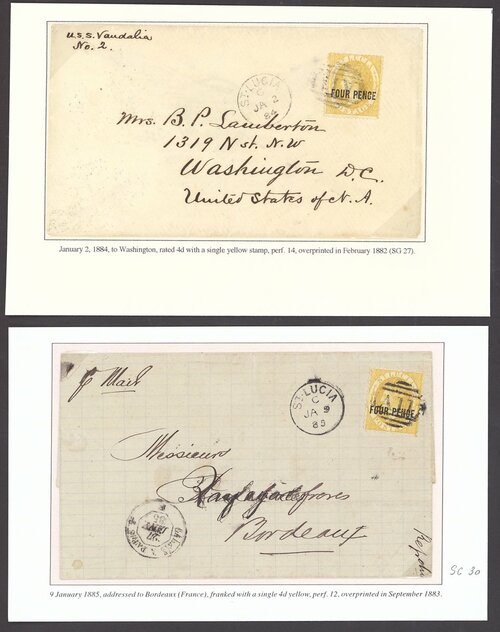 U.S.S. Vandalia
No. 2.
FOUR PENCE
ST. LUCIA
C
JA 2
84
Mrs. B. P. Lamberton
1319 N st. N.W
Washington D.C.
United States of N. A.
January 2, 1884, to Washington, rated 4d with a single yellow stamp, perf. 14, overprinted in February 1882 (SG 27).
p Mail
ST. LUCIA
C
JA 9
85
A 11
FOUR PENCE
Messieurs
frères
Bordeaux
CALAIS A PARIS
SG 30
9 January 1885, addressed to Bordeaux (France), franked with a single 4d yellow, perf. 12, overprinted in September 1883.